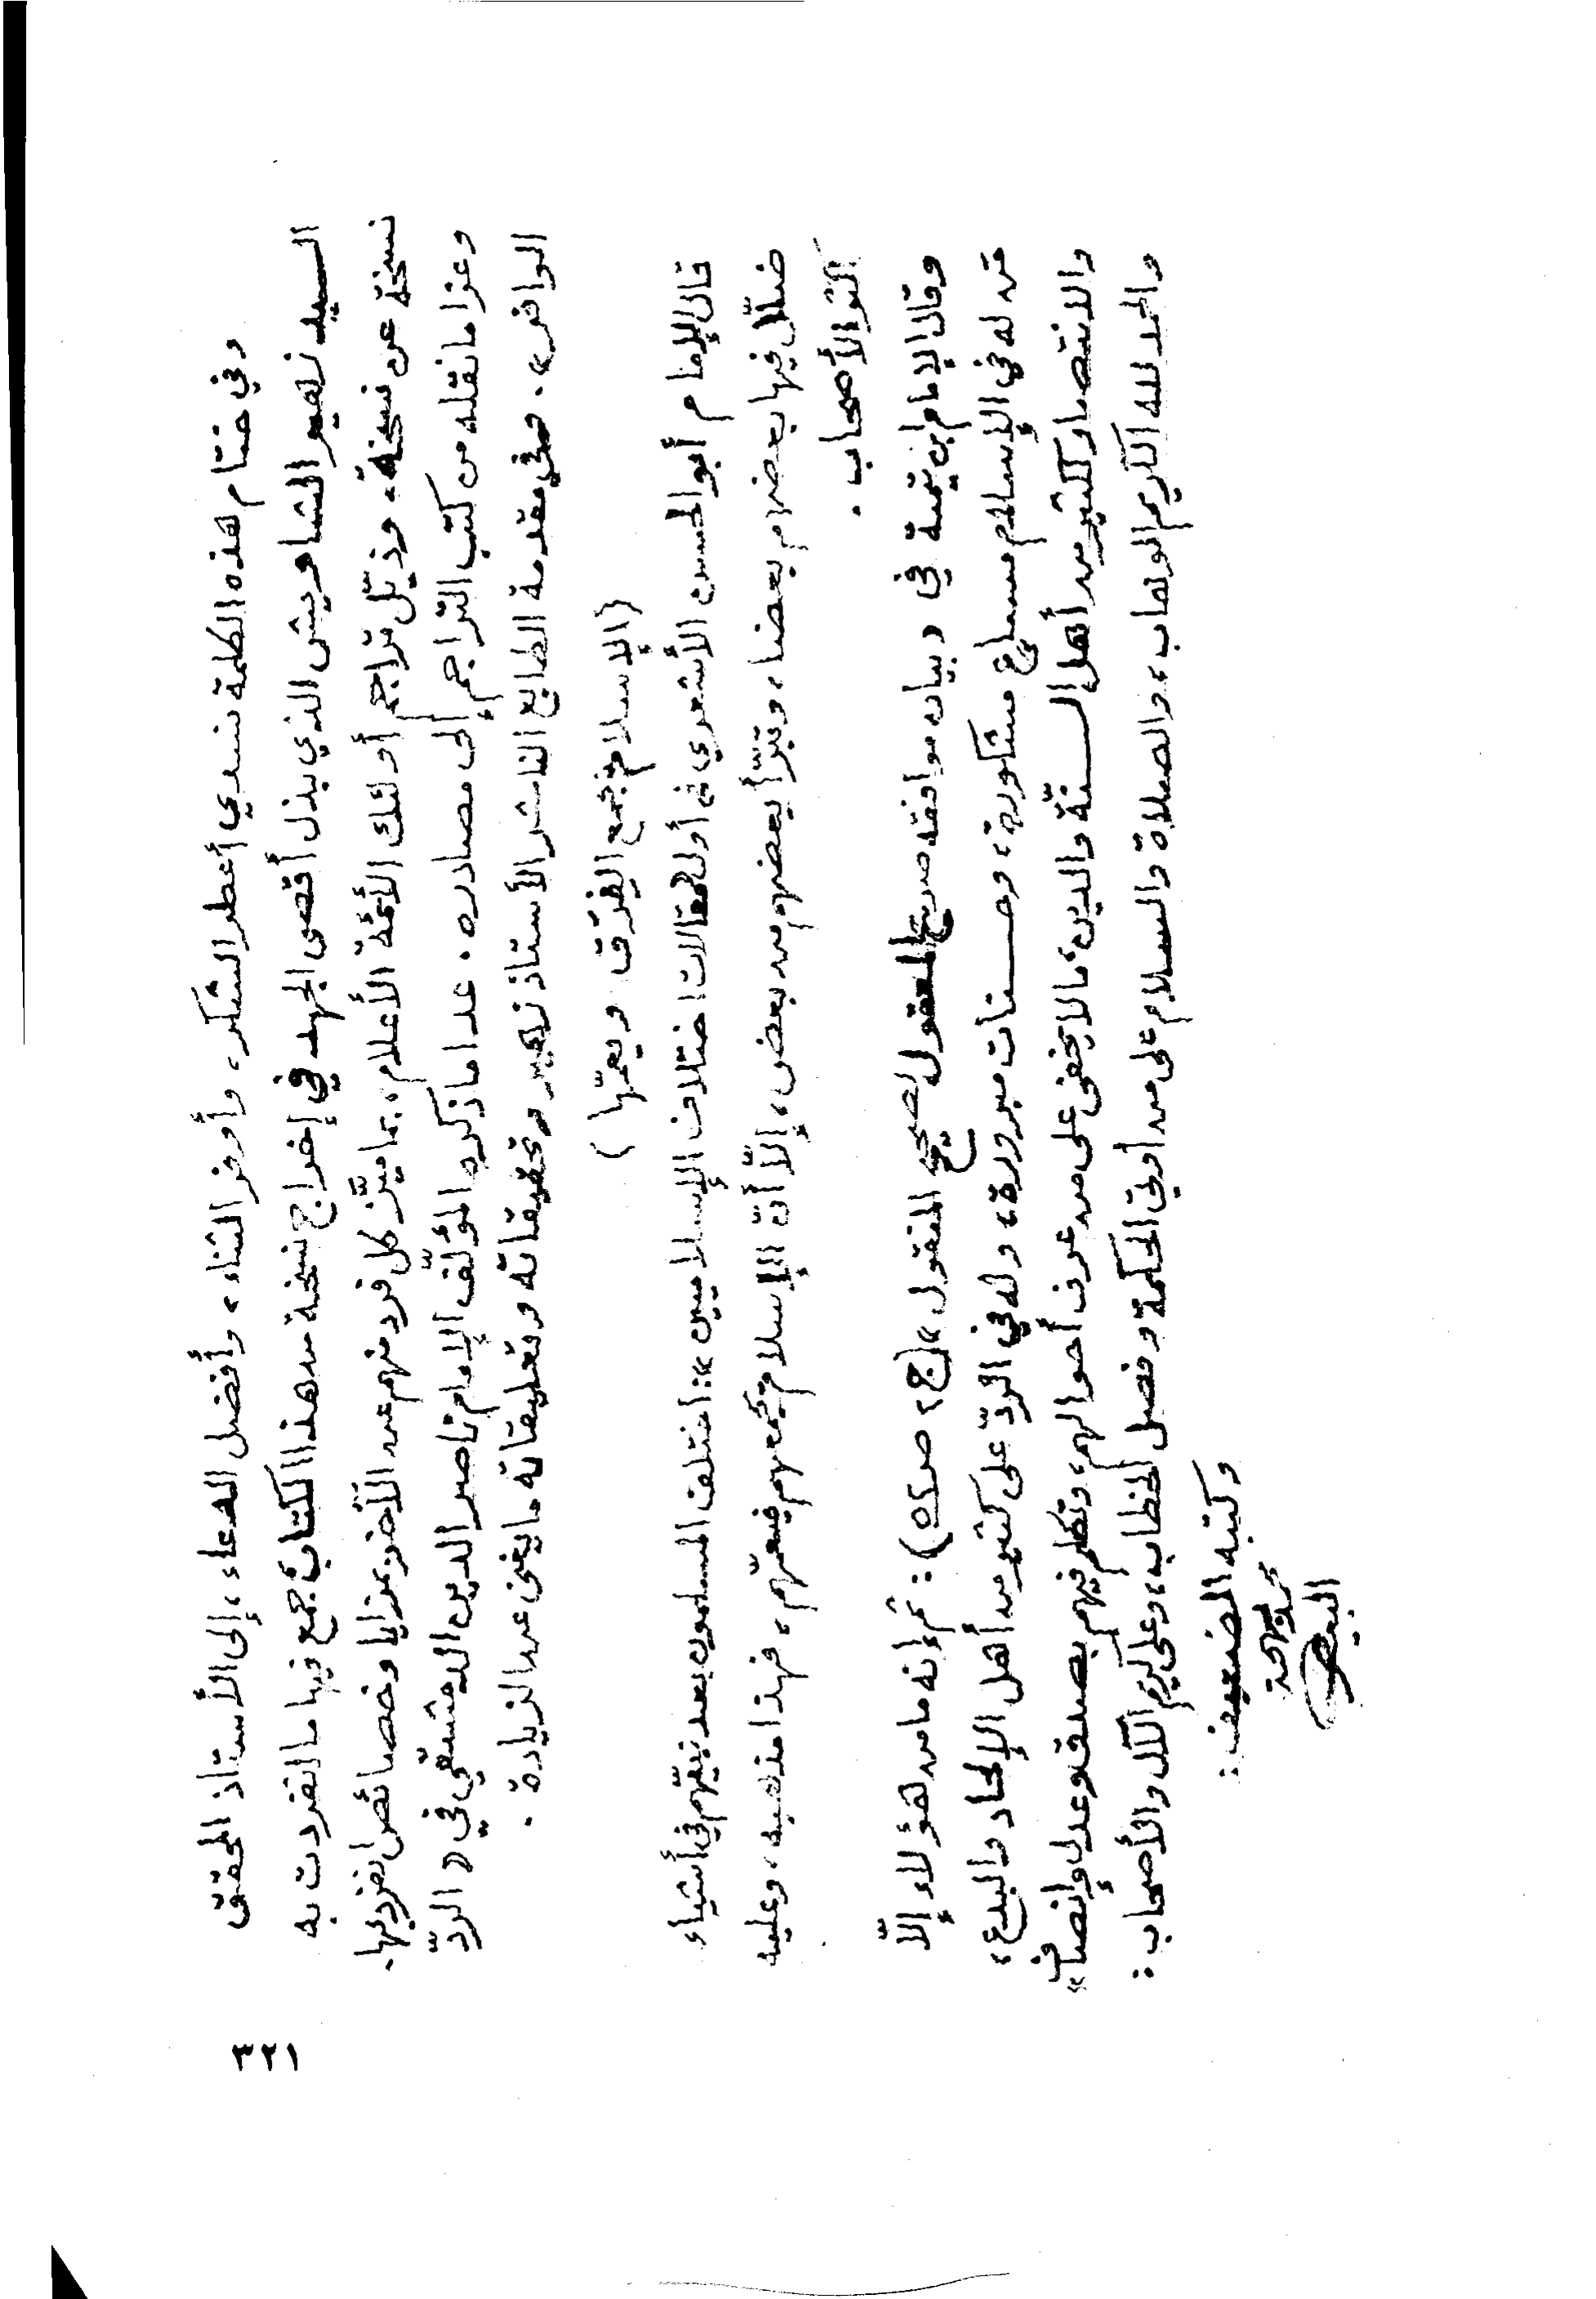 وفي ختام هذه الكلمة نسدي أعطر الشكر، وأوفر الثناء، وأفضل الدعاء، إلى الأستاذ المحقق
السيد زهير الشاويش الذي بذل أقصى الجهد في إخراج نسخة من هذا الكتاب جمع فيها ما انفردت به
نسخة عن نسخة، وذيّل تراجم أولئك الأئمة الأعلام، بما ميّز كل فرد منهم عن الآخر بمزايا وخصائص انفرد بها.
وعزا ما نقله من كتب التراجم إلى مصادره. عدا ما ذكره المؤلّف الإمام ناصر الدين الدمشقي في «الردّ
الوافر». وفي مقدمة الطابع الناشر الأستاذ زهير وتحقيقاته وتعليقاته ما يغني عن الزيادة.
(الإسلام يجمع الفِرَق ويعمّها)
قال الإمام أبو الحسن الأشعري في أول «مقالات اختلاف الإسلاميين»: اختلف المسلمون بعد نبيّهم في أشياء
ضلّل فيها بعضهم بعضا، وتبرّأ بعضهم من بعض، إلّا أنّ الإسلام يجمعهم فيعمّهم، فهذا مذهبه، وعليه
أكثر الأصحاب.
وقال الإمام ابن تيمية في «بيان موافقة صريح المعقول لصحيح المنقول» (ج ٢ ص ): ثم إنه ما من هؤلاء إلّا
مَن له في الإسلام مساعٍ مشكورة، وحسنات مبرورة، وله في الردّ على كثير من أهل الإلحاد والبدع،
والانتصار لكثير من أهل السنّة والدين، ما لا يخفى على من عرف أحوالهم، وتكلم فيهم بصدق وعدل وإنصاف»
والحمد لله الكريم الوهاب، والصلاة والسلام على من أوتي الحكمة وفصل الخطاب، وعلى كريم الآل والأصحاب:
وكتبه الضعيف:
محمد بهجة
البيطار
١٢٤